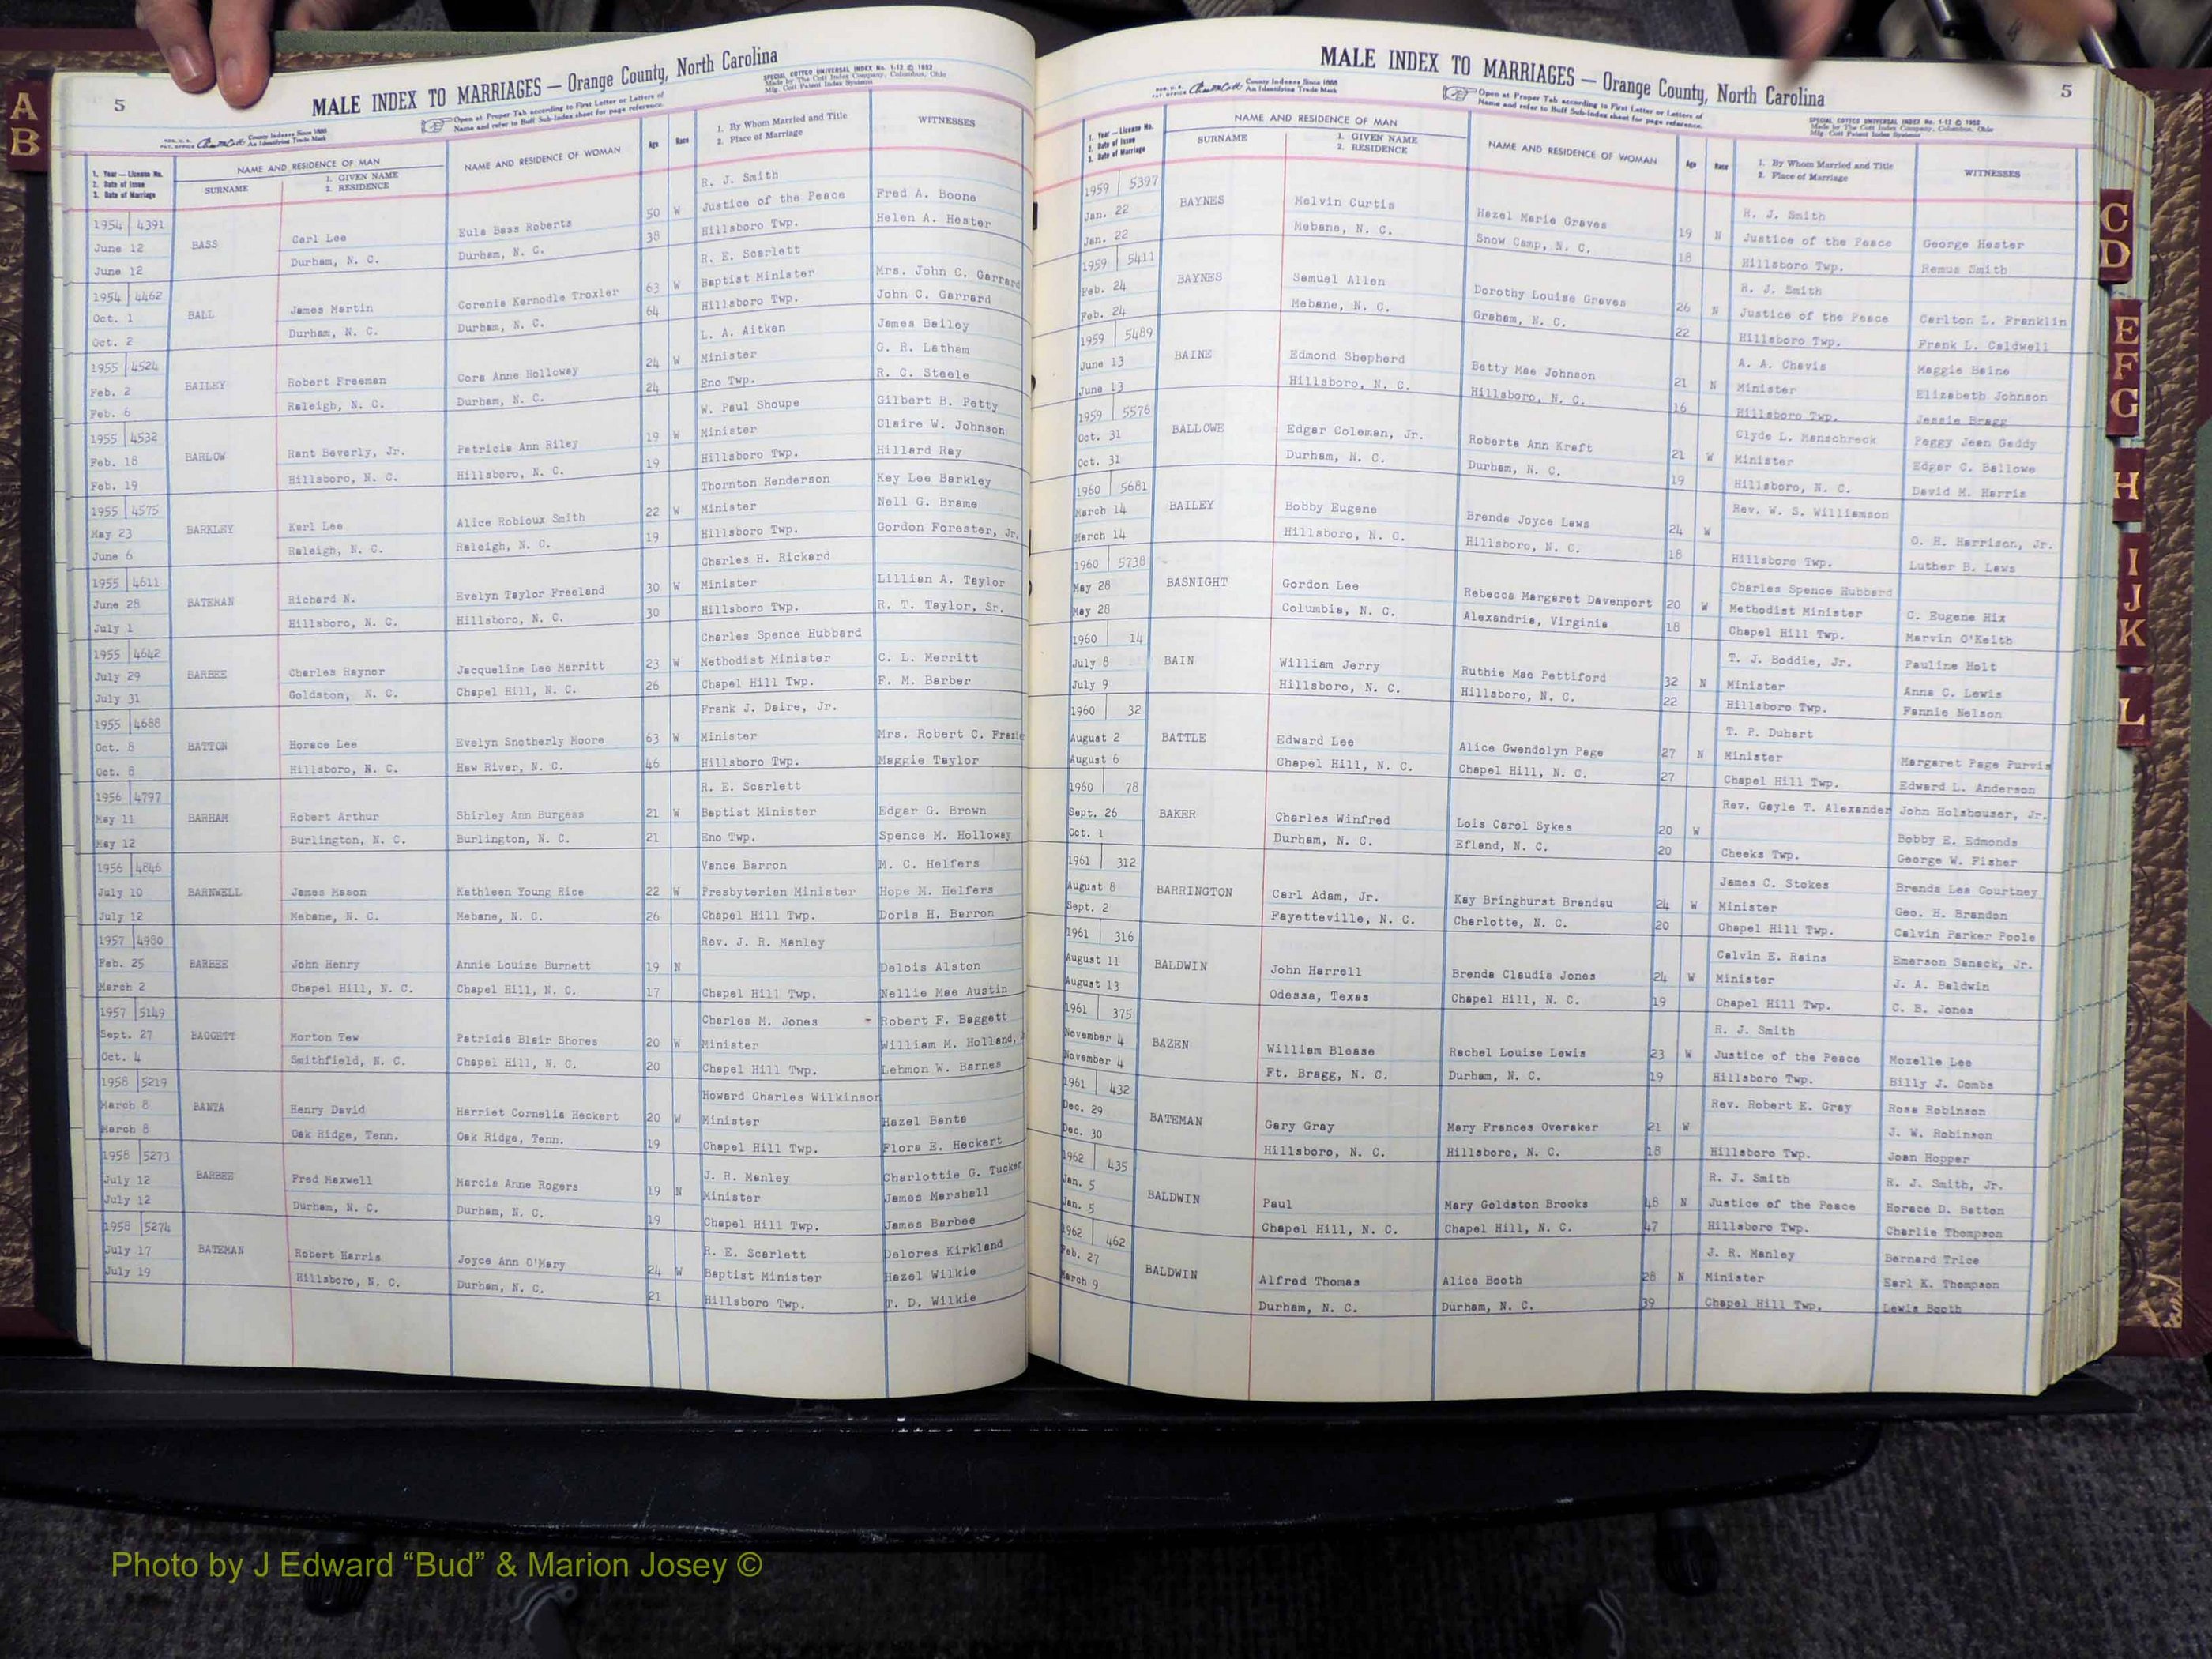 A
B
5
MALE INDEX TO MARRIAGES — Orange County, North Carolina
SPECIAL COTTCO UNIVERSAL INDEX No. 1-12 © 1952
Made by The Cott Index Company, Columbus, Ohio
County Indexes Since 1888
An Identifying Trade Mark
Open at Proper Tab according to First Letter or Letters of
Name and refer to Buff Sub-Index sheet for page reference.
1. Year — License No.
2. Date of Issue
3. Date of Marriage
NAME AND RESIDENCE OF MAN
SURNAME
1. GIVEN NAME
2. RESIDENCE
NAME AND RESIDENCE OF WOMAN
Age
Race
1. By Whom Married and Title
2. Place of Marriage
WITNESSES
R. J. Smith
1954 4391 Eula Bass Roberts 50 W Justice of the Peace Fred A. Boone
June 12 BASS Carl Lee Durham, N. C. 38 Hillsboro Twp. Helen A. Hester
June 12 Durham, N. C.
R. E. Scarlett
1954 4462 Corenia Kernodle Troxler 63 W Baptist Minister Mrs. John C. Garrard
Oct. 1 BALL James Martin Durham, N. C. 64 Hillsboro Twp. John C. Garrard
Oct. 2 Durham, N. C.
L. A. Aitken James Bailey
1955 4524 Cora Anne Holloway 24 W Minister G. R. Latham
Feb. 2 BAILEY Robert Freeman Durham, N. C. 24 Eno Twp. R. C. Steele
Feb. 6 Raleigh, N. C.
W. Paul Shoupe Gilbert B. Petty
1955 4532 Patricia Ann Riley 19 W Minister Claire W. Johnson
Feb. 18 BARLOW Rant Beverly, Jr. Hillsboro, N. C. 19 Hillsboro Twp. Hillard Ray
Feb. 19 Hillsboro, N. C.
Thornton Henderson Key Lee Barkley
1955 4575 Alice Robioux Smith 22 W Minister Nell G. Brame
May 23 BARKLEY Karl Lee Raleigh, N. C. 19 Hillsboro Twp. Gordon Forester, Jr.
June 6 Raleigh, N. C.
Charles H. Rickard
1955 4611 Evelyn Taylor Freeland 30 W Minister Lillian A. Taylor
June 28 BATEMAN Richard N. Hillsboro, N. C. 30 Hillsboro Twp. R. T. Taylor, Sr.
July 1 Hillsboro, N. C.
Charles Spence Hubbard
1955 4642 Jacqueline Lee Merritt 23 W Methodist Minister C. L. Merritt
July 29 BARBEE Charles Raynor Chapel Hill, N. C. 26 Chapel Hill Twp. F. M. Barber
July 31 Goldston, N. C.
Frank J. Daire, Jr.
1955 4688 Minister Mrs. Robert C. Frazie
Oct. 8 BATTON Horace Lee Evelyn Snotherly Moore 63 W
Oct. 8 Hillsboro, N. C. Haw River, N. C. 46 Hillsboro Twp. Maggie Taylor
R. E. Scarlett
1956 4797 Baptist Minister Edgar G. Brown
May 11 BARHAM Robert Arthur Shirley Ann Burgess 21 W
May 12 Burlington, N. C. Burlington, N. C. 21 Eno Twp. Spence M. Holloway
1956 4846 Vance Barron M. C. Helfers
July 10 BARNWELL James Mason Kathleen Young Rice 22 W Presbyterian Minister Hope M. Helfers
July 12 Mebane, N. C. Mebane, N. C. 26 Chapel Hill Twp. Doris H. Barron
1957 4980 Rev. J. R. Manley
Feb. 25 BARBEE John Henry Annie Louise Burnett 19 N Delois Alston
March 2 Chapel Hill, N. C. Chapel Hill, N. C. 17 Chapel Hill Twp. Nellie Mae Austin
1957 5149 Charles M. Jones Robert F. Baggett
Sept. 27 BAGGETT Morton Tew Patricia Blair Shores 20 W Minister William M. Holland,
Oct. 4 Smithfield, N. C. Chapel Hill, N. C. 20 Chapel Hill Twp. Lehmon W. Barnes
1958 5219 Howard Charles Wilkinson
March 8 BANTA Henry David Harriet Cornelia Heckert 20 W Minister Hazel Banta
March 8 Oak Ridge, Tenn. Oak Ridge, Tenn. 19 Chapel Hill Twp. Flora E. Heckert
1958 5273 J. R. Manley Charlottie G. Tucker
July 12 BARBEE Fred Maxwell Marcia Anne Rogers 19 N Minister James Marshall
July 12 Durham, N. C. Durham, N. C. 19 Chapel Hill Twp. James Barbee
1958 5274 R. E. Scarlett Delores Kirkland
July 17 BATEMAN Robert Harris Joyce Ann O'Mary 24 W Baptist Minister Hazel Wilkie
July 19 Hillsboro, N. C. Durham, N. C. 21 Hillsboro Twp. T. D. Wilkie
MALE INDEX TO MARRIAGES — Orange County, North Carolina
5
County Indexes Since 1888
An Identifying Trade Mark
Open at Proper Tab according to First Letter or Letters of
Name and refer to Buff Sub-Index sheet for page reference.
SPECIAL COTTCO UNIVERSAL INDEX No. 1-12 © 1952
Made by The Cott Index Company, Columbus, Ohio
1. Year — License No.
2. Date of Issue
3. Date of Marriage
NAME AND RESIDENCE OF MAN
SURNAME
1. GIVEN NAME
2. RESIDENCE
NAME AND RESIDENCE OF WOMAN
Age
Race
1. By Whom Married and Title
2. Place of Marriage
WITNESSES
1959 5397 R. J. Smith
Jan. 22 BAYNES Melvin Curtis Hazel Marie Graves 19 N Justice of the Peace George Hester
Jan. 22 Mebane, N. C. Snow Camp, N. C. 18 Hillsboro Twp. Remus Smith
1959 5411 R. J. Smith
Feb. 24 BAYNES Samuel Allen Dorothy Louise Graves 26 N Justice of the Peace Carlton L. Franklin
Feb. 24 Mebane, N. C. Graham, N. C. 22 Hillsboro Twp. Frank L. Caldwell
1959 5489 A. A. Chavis Maggie Baine
June 13 BAINE Edmond Shepherd Betty Mae Johnson 21 N Minister Elizabeth Johnson
June 13 Hillsboro, N. C. Hillsboro, N. C. 16 Hillsboro Twp. Jessie Bragg
1959 5576 Clyde L. Manschreck Peggy Jean Gaddy
Oct. 31 BALLOWE Edgar Coleman, Jr. Roberta Ann Kraft 21 W Minister Edgar C. Ballowe
Oct. 31 Durham, N. C. Durham, N. C. 19 Hillsboro, N. C. David M. Harris
1960 5681 Rev. W. S. Williamson
March 14 BAILEY Bobby Eugene Brenda Joyce Laws 24 W O. H. Harrison, Jr.
March 14 Hillsboro, N. C. Hillsboro, N. C. 18 Hillsboro Twp. Luther B. Laws
1960 5738 Charles Spence Hubbard
May 28 BASNIGHT Gordon Lee Rebecca Margaret Davenport 20 W Methodist Minister C. Eugene Hix
May 28 Columbia, N. C. Alexandria, Virginia 18 Chapel Hill Twp. Marvin O'Keith
1960 14 T. J. Boddie, Jr. Pauline Holt
July 8 BAIN William Jerry Ruthie Mae Pettiford 32 N Minister Anna C. Lewis
July 9 Hillsboro, N. C. Hillsboro, N. C. 22 Hillsboro Twp. Fannie Nelson
1960 32 T. P. Duhart
August 2 BATTLE Edward Lee Alice Gwendolyn Page 27 N Minister Margaret Page Purvis
August 6 Chapel Hill, N. C. Chapel Hill, N. C. 27 Chapel Hill Twp. Edward L. Anderson
1960 78 Rev. Gayle T. Alexander John Holshouser, Jr.
Sept. 26 BAKER Charles Winfred Lois Carol Sykes 20 W Bobby E. Edmonds
Oct. 1 Durham, N. C. Efland, N. C. 20 Cheeks Twp. George W. Fisher
1961 312 James C. Stokes Brenda Lea Courtney
August 8 BARRINGTON Carl Adam, Jr. Kay Bringhurst Brandau 24 W Minister Geo. H. Brandon
Sept. 2 Fayetteville, N. C. Charlotte, N. C. 20 Chapel Hill Twp. Calvin Parker Poole
1961 316 Calvin E. Rains Emerson Sanack, Jr.
August 11 BALDWIN John Harrell Brenda Claudia Jones 24 W Minister J. A. Baldwin
August 13 Odessa, Texas Chapel Hill, N. C. 19 Chapel Hill Twp. C. B. Jones
1961 375 R. J. Smith
November 4 BAZEN William Blease Rachel Louise Lewis 23 W Justice of the Peace Mozelle Lee
November 4 Ft. Bragg, N. C. Durham, N. C. 19 Hillsboro Twp. Billy J. Combs
1961 432 Rev. Robert E. Gray Rosa Robinson
Dec. 29 BATEMAN Gary Gray Mary Frances Overaker 21 W J. W. Robinson
Dec. 30 Hillsboro, N. C. Hillsboro, N. C. 18 Hillsboro Twp. Joan Hopper
1962 435 R. J. Smith R. J. Smith, Jr.
Jan. 5 BALDWIN Paul Mary Goldston Brooks 48 N Justice of the Peace Horace D. Batton
Jan. 5 Chapel Hill, N. C. Chapel Hill, N. C. 47 Hillsboro Twp. Charlie Thompson
1962 462 J. R. Manley Bernard Trice
Feb. 27 BALDWIN Alfred Thomas Alice Booth 28 N Minister Earl K. Thompson
March 9 Durham, N. C. Durham, N. C. 39 Chapel Hill Twp. Lewis Booth
C
D
E
F
G
H
I
J
K
L
Photo by J Edward “Bud” & Marion Josey ©